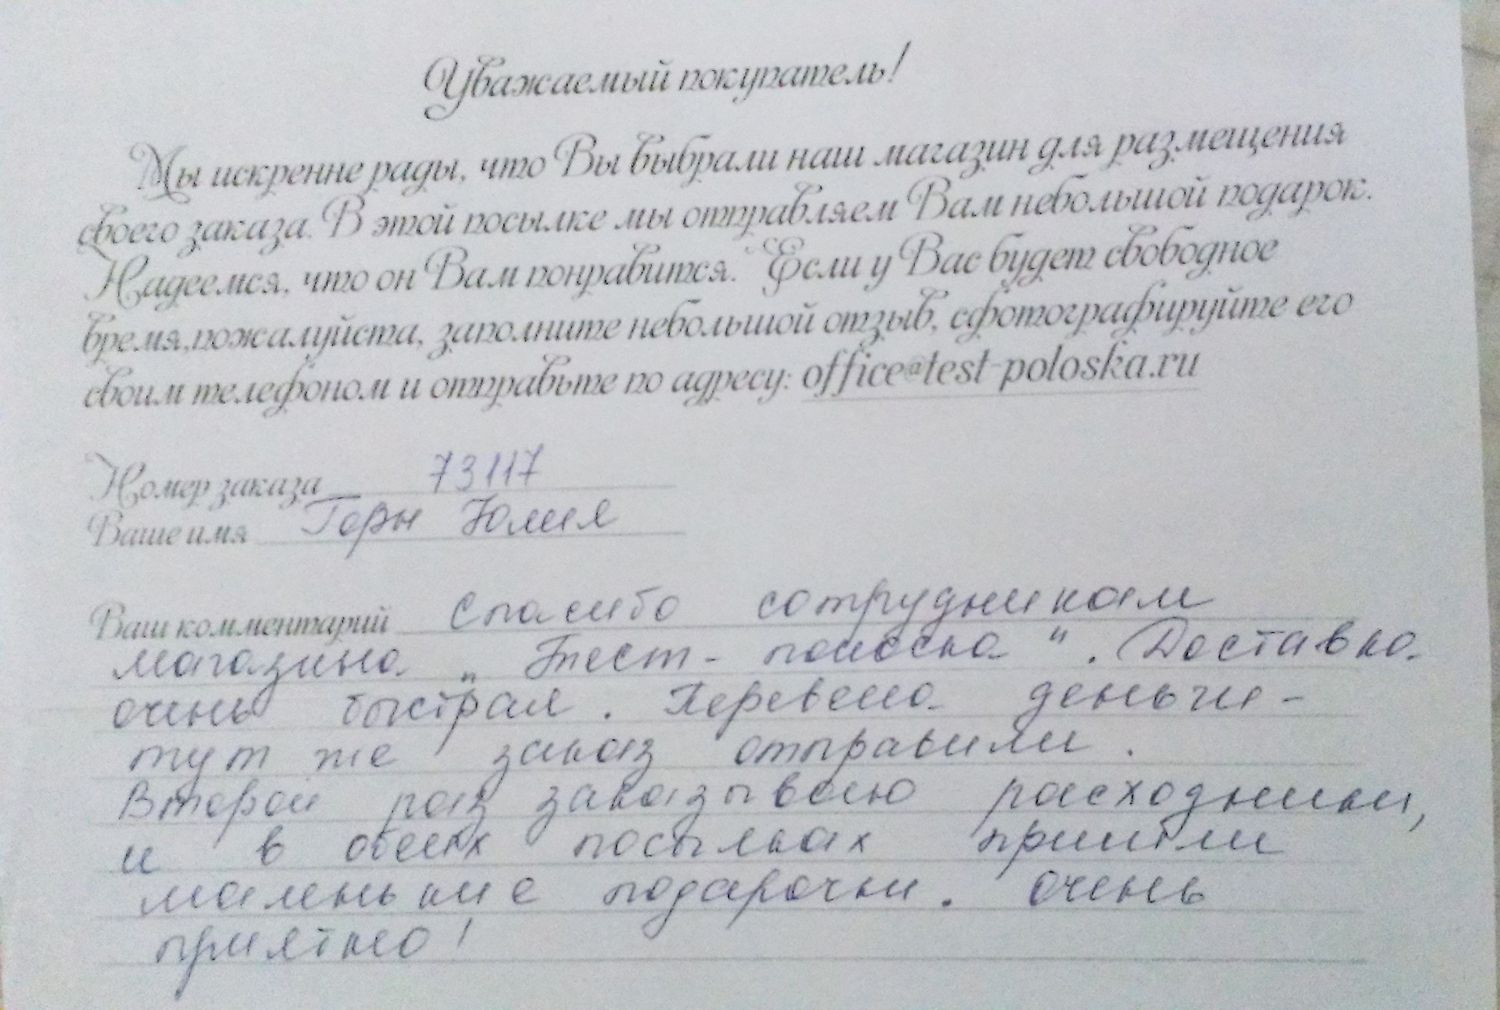 Уважаемый покупатель!
Мы искренне рады, что Вы выбрали наш магазин для размещения
своего заказа. В этой посылке мы отправляем Вам небольшой подарок.
Надеемся, что он Вам понравится. Если у Вас будет свободное
время,пожалуйста, заполните небольшой отзыв, сфотографируйте его
своим телефоном и отправьте по адресу: office@test-poloska.ru
Номер заказа 73117
Ваше имя Горн Юлия
Ваш комментарий Спасибо сотрудникам
магазина „Тест-полоска". Доставка
очень быстрая. Перевела деньги -
тут же заказ отправили.
Второй раз заказываю расходники,
и в обеих посылках пришли
маленькие подарочки. очень
приятно!